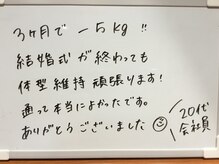 3ヶ月で −5kg !!
結婚式が終わっても
体型維持頑張ります!
通って本当によかったです。
ありがとうございました
20代
会社員